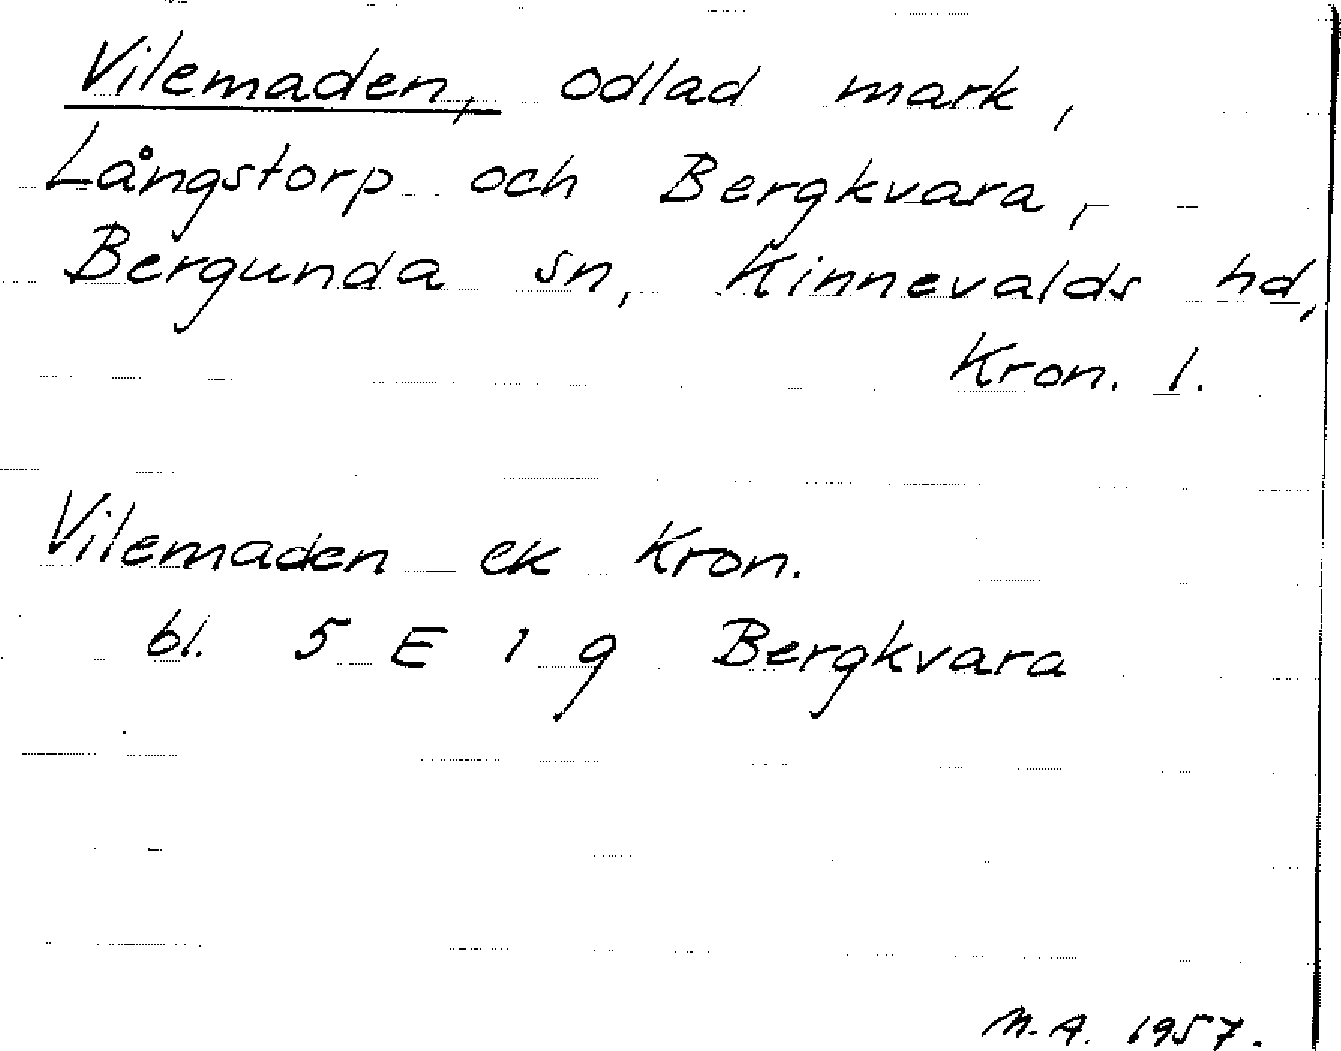 Vilemaden, odlad mark,
Långstorp och Bergkvara,
Bergunda sn, Kinnevalds hd,
Kron. l.
Vilemaden ek Kron.
bl. 5 E 1 g Bergkvara
M.A. 1957.